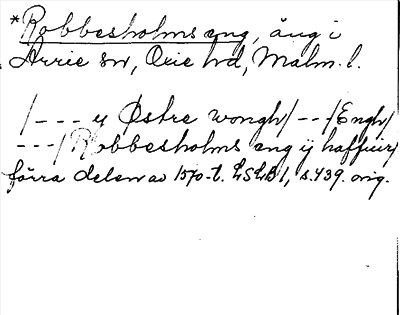 *Robbesholms eng, äng i
Arrie sn, Oxie hd, Malm. l.
/--- y Østre wongh/--/Engh/
---/Robbesholms eng ij haffuir/
förra delen av 1570-t. LSLB 1, s. 439. orig.